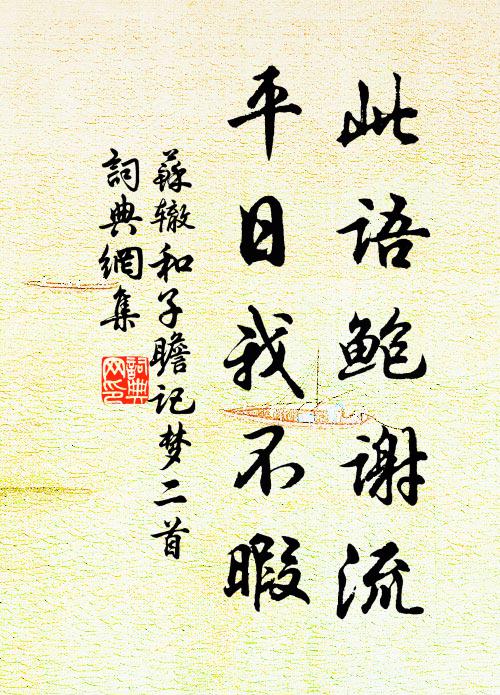 此语鲍谢流
平日我不暇
蘇辙和子瞻记梦二首
詞典網集
詞典网印